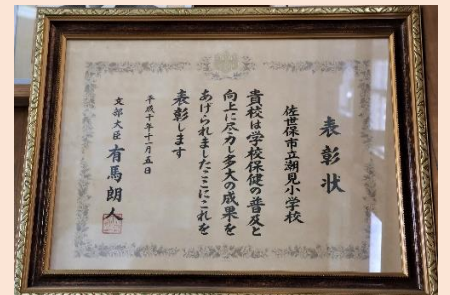 表彰状
佐世保市立潮見小学校
貴校は学校保健の普及と
向上に尽力し多大の成果を
あげられましたここにこれを
表彰します
平成十年十一月五日
文部大臣 有馬朗人